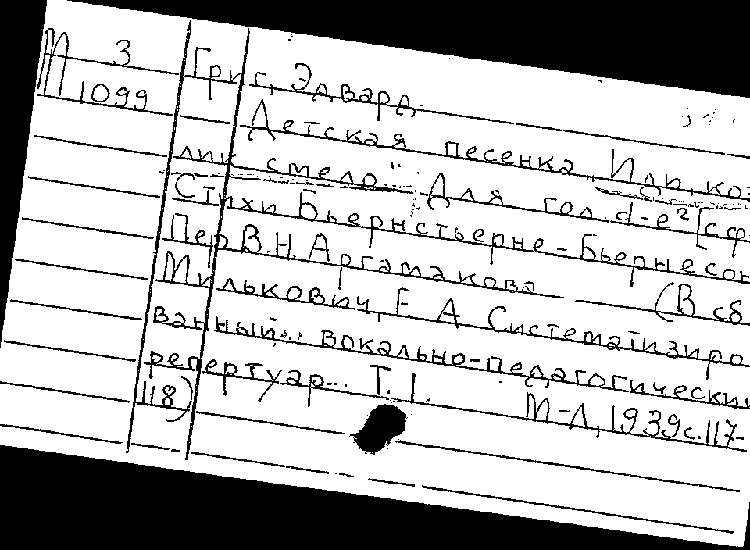 М 3
1099
Григ, Эдвард
Детская песенка „Иди, коз
лик смело" Для гол. d-e² [с ф-
Стихи Бьернстьерне-Бьернсон
Пер. В.Н. Аргамакова (В сб
Милькович, Е А Систематизиро
ванный.. вокально-педагогический
репертуар... Т. I. М-Л, 1939 с. 117-
118)